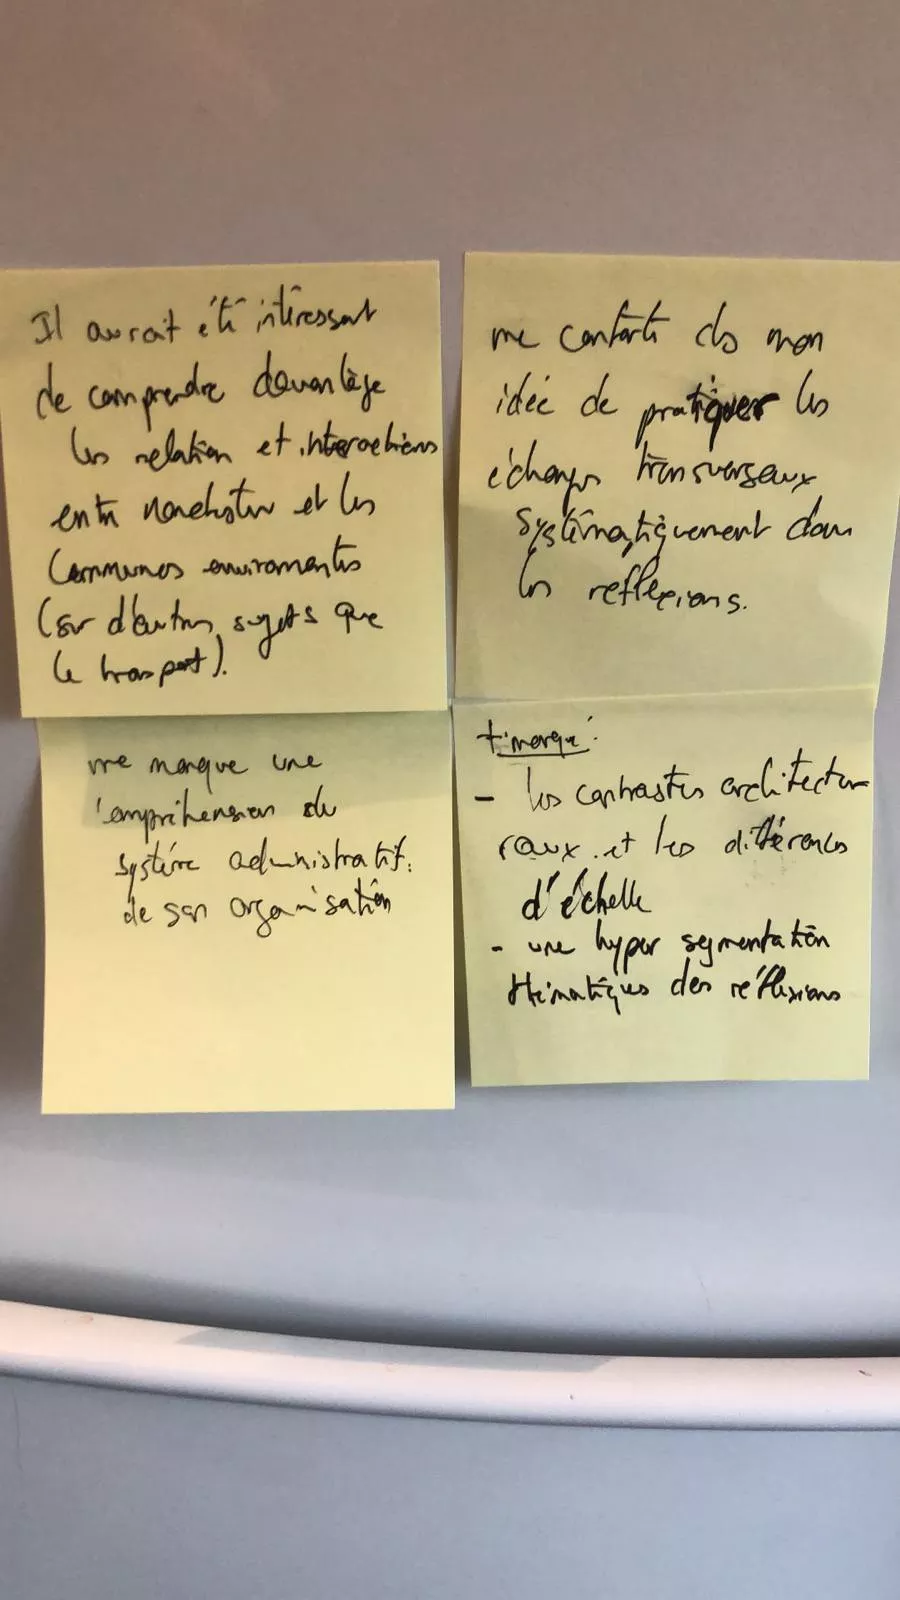 Il aurait été intéressant
de comprendre davantage
les relation et interactions
entre Manchester et les
Communes environantes
(sur d'autres sujets que
le transport).
me conforte ds mon
idée de pratiquer les
échanges transversaux
systématiquement dans
les réflexions.
me manque une
compréhension du
système administratif.
de son organisation
+ marqué :
- les contrastes architectu-
raux et les différences
d'échelle
- une hyper segmentation
thématiques des réflexions